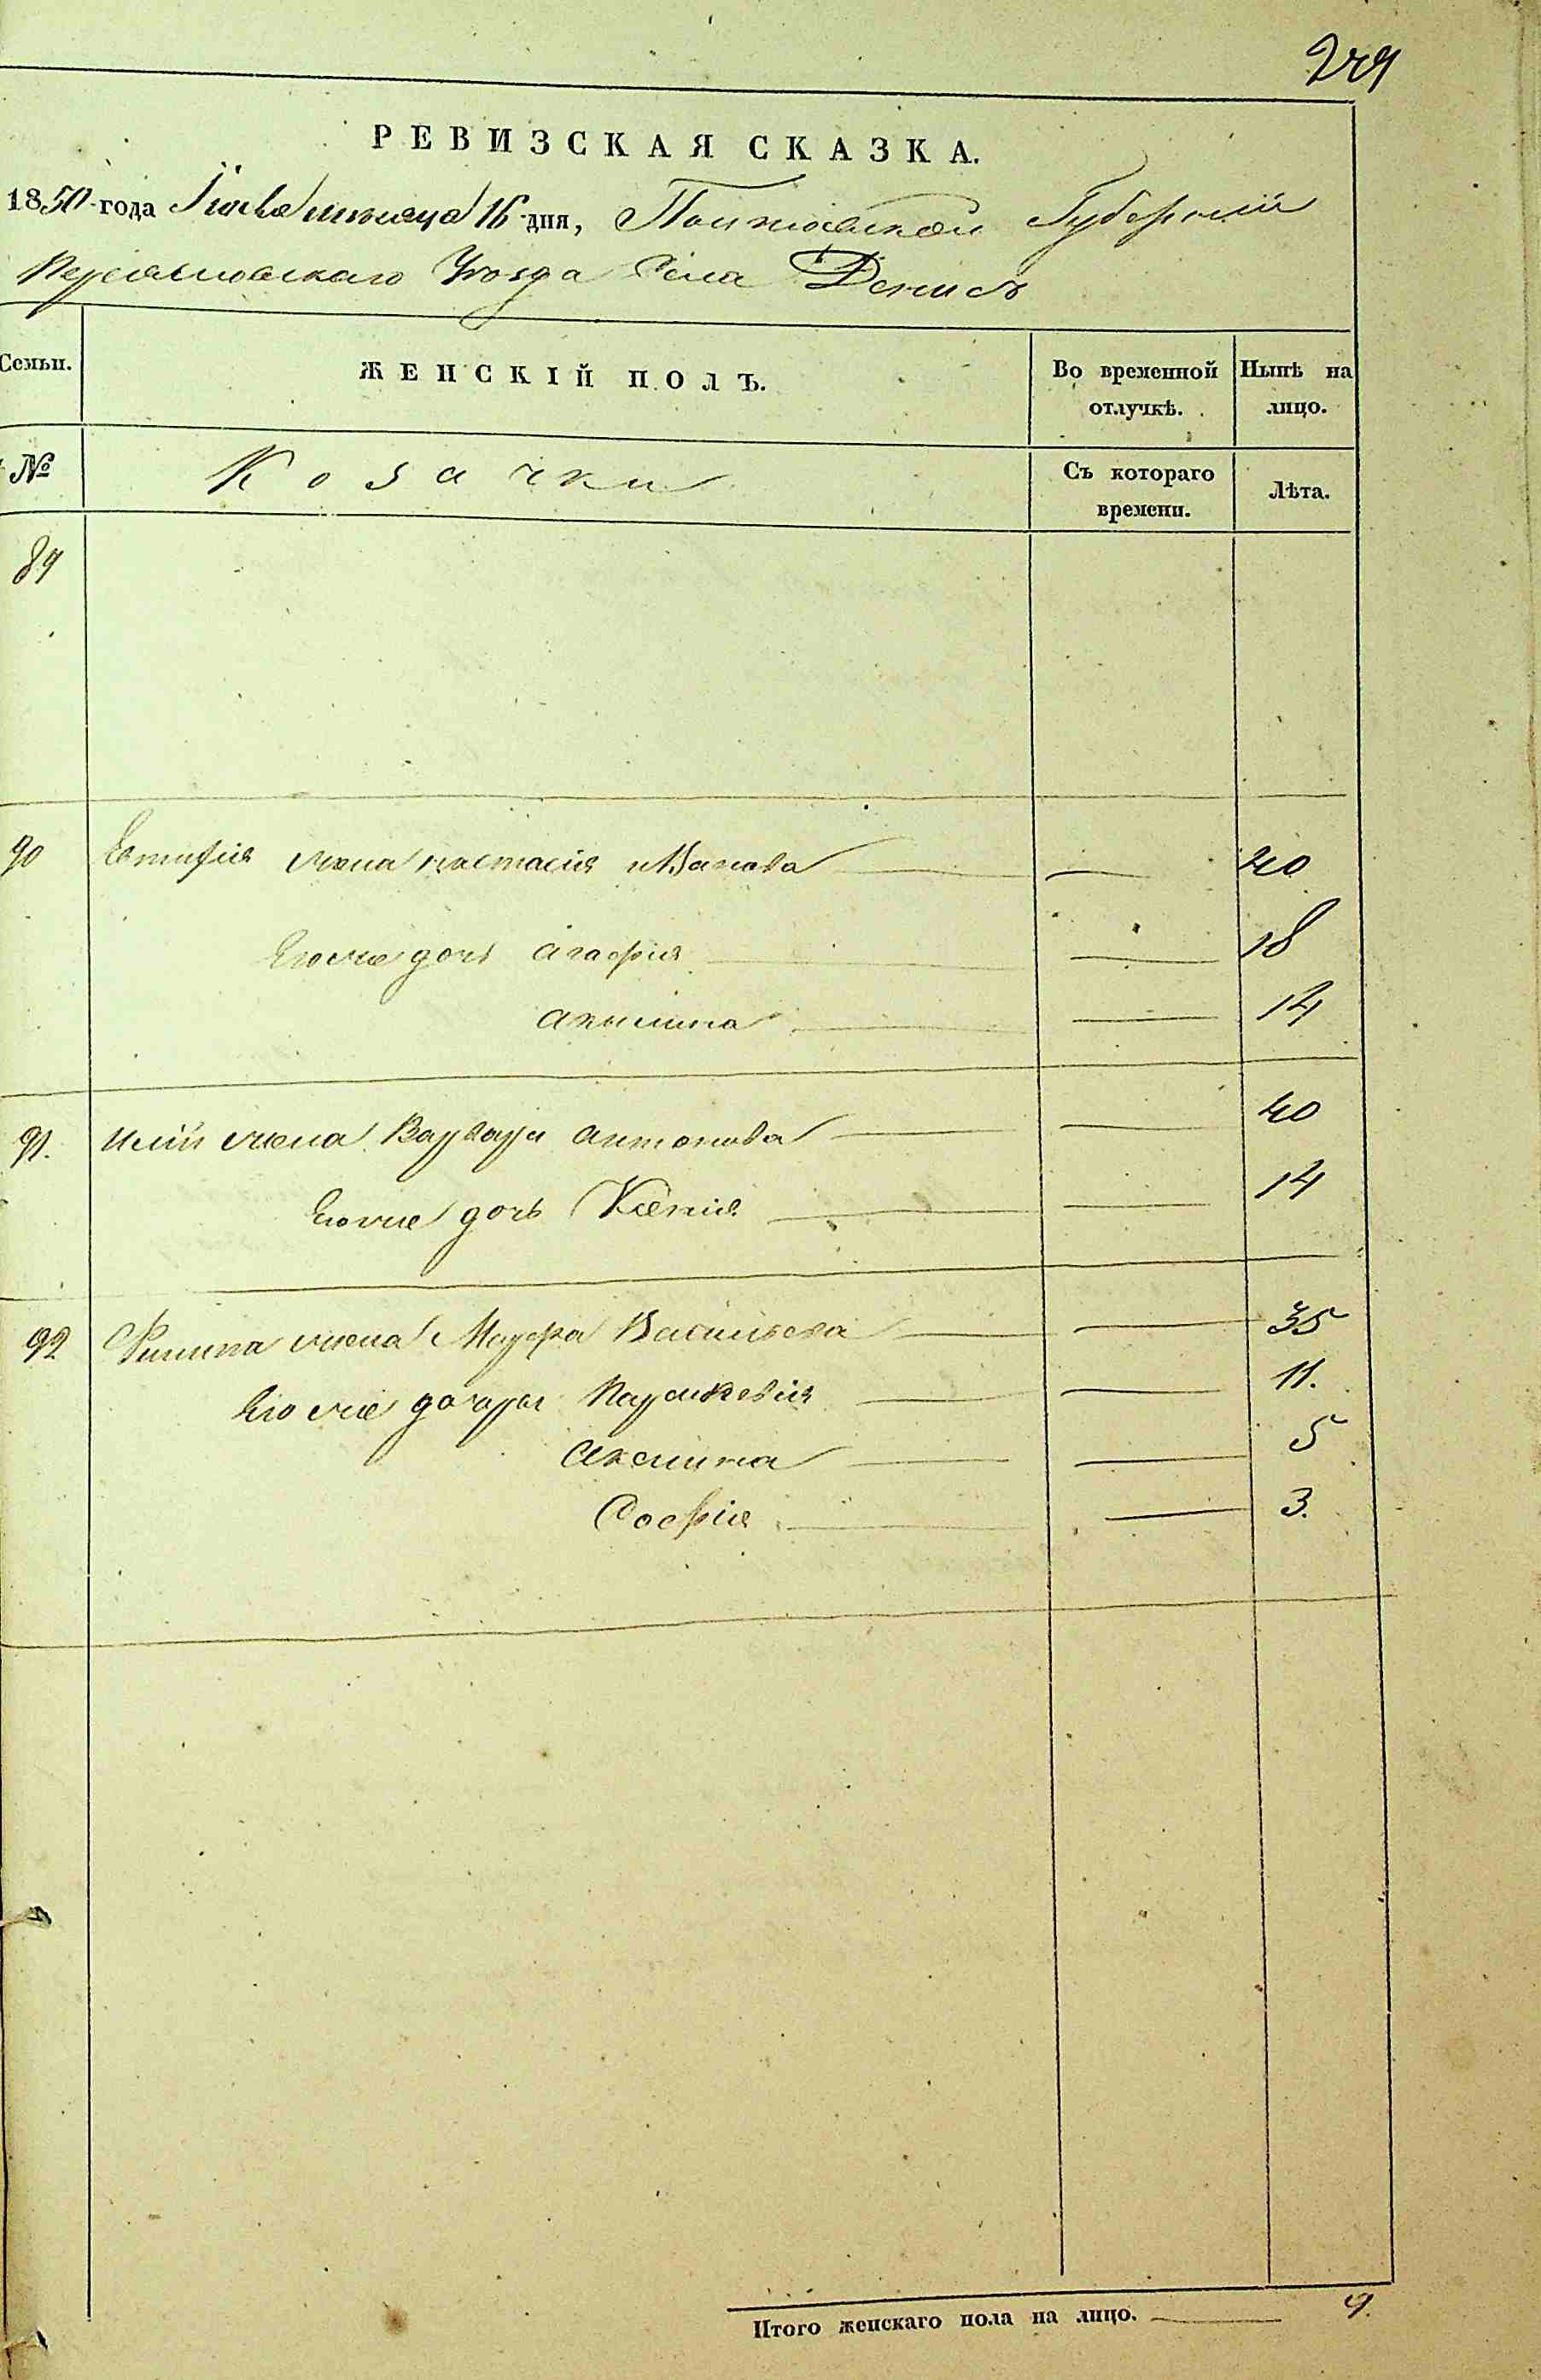 249
РЕВИЗСКАЯ СКАЗКА.
1850 года Іюля месяца 16 дня, Полтавской Губерніи
Переяславскаго Уезда Села Денисъ
Семьи. ЖЕНСКІЙ ПОЛЪ. Во временной отлучкѣ. Нынѣ на лицо.
№ Козачки Съ котораго времени. Лѣта.
89
90 Евтифія жена настасія иванова — — 40
Егоже дочь агафія — — 18
акылина — — 14
91. Иліи жена Варвара антонова — — 40
Егоже дочь Ксенія — — 14
92 Филипа жена Мавра Васильева — — 35
Его же дочеры Параскевія — — 11.
Акилина — — 5
Софія — — 3.
Итого женскаго пола на лицо. — 9.